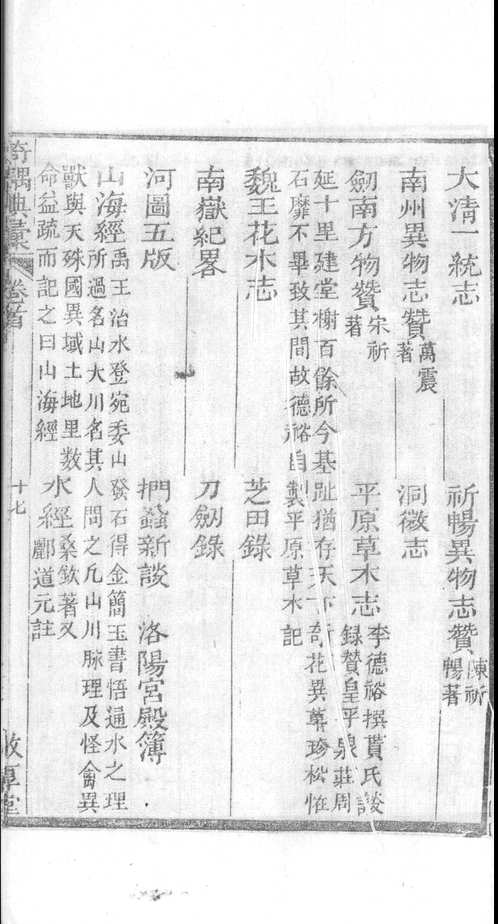 大清一統志　祈暢異物志贊 陳祈暢著
南州異物志贊 萬震著　洞微志
劒南方物贊 宋祈著　平原草木志 李德裕撰賈氏談錄贊皇平泉莊周
延十里建堂榭百餘所今基趾猶存天下奇花異草珍松怪
石靡不畢致其間故德裕自製平原草木記
魏王花木志　芝田錄
南嶽紀畧　刀劒錄
河圖五版　捫蝨新談　洛陽宮殿簿
山海經 禹王治水登宛委山發石得金簡玉書悟通水之理
所過名山大川名其人問之凡山川脉理及怪禽異
獸與天殊國異域土地里数
命益疏而記之曰山海經　水經 桑欽著又酈道元註
卷首
十七